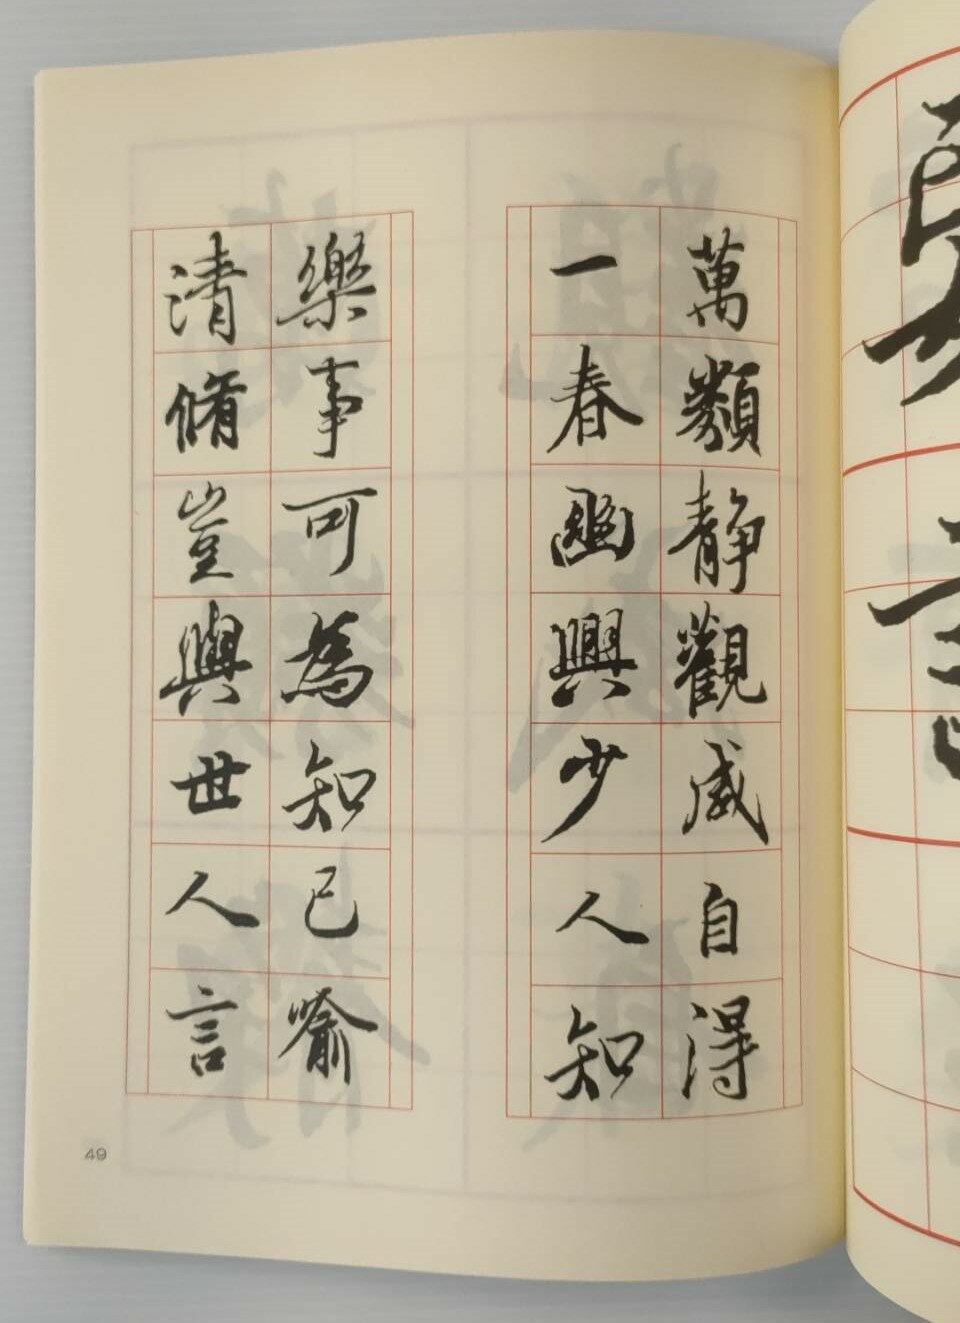 萬類靜觀咸自得
一春幽興少人知
樂事可為知己喻
清脩豈與世人言
49